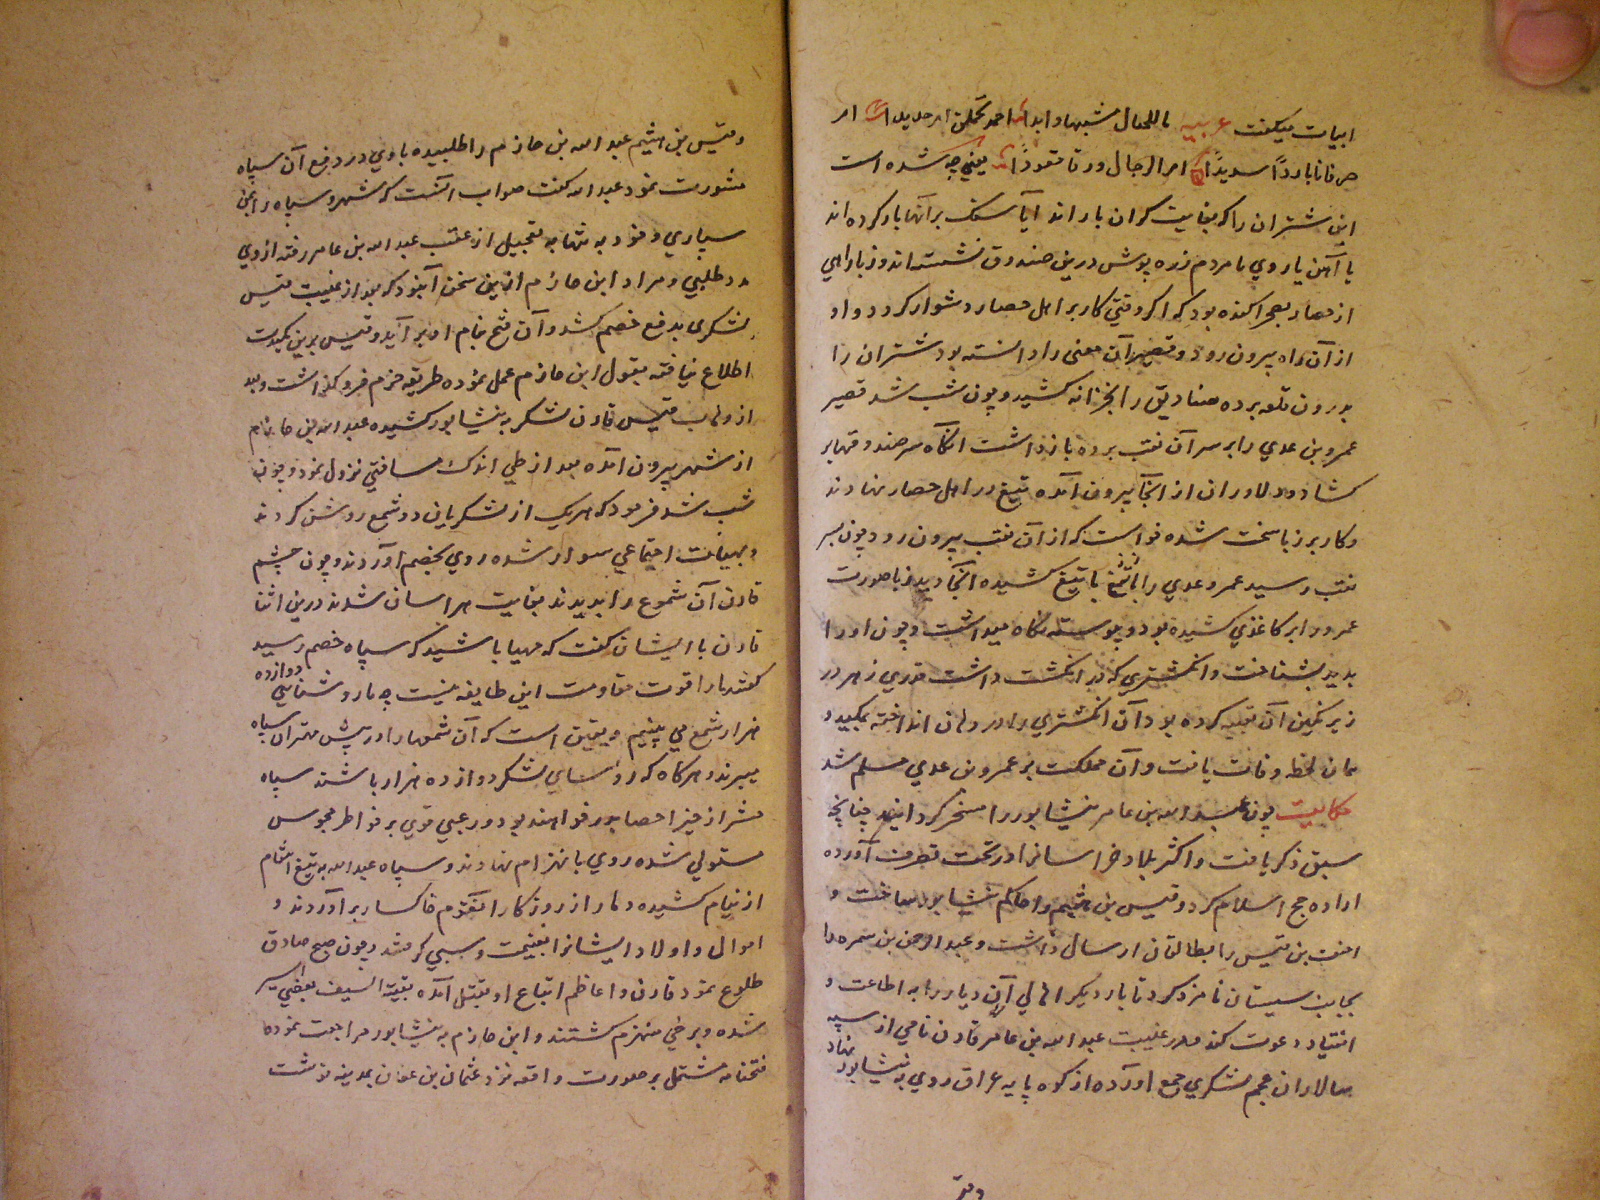 ابیات میکفت عربیه ما للجمال مشیها وایدا اجندلا یحملن ام حدیدا ام
صرفانا باردًا سدیدًا ام الرجال ورقا قعودًا یعنی چه شده است
این شتران را که بغایت کران باراند آیا سنک بر آنها بار کرده اند
یا آهن یا روی یا مردم زره پوش درین صندوق نشسته اند و زبا راهی
از حصار بصحرا کنده بود که اکر وقتی کار بر اهل حصار دشوار کردد او
از آن راه بیرون رود و قصیر آن معنی را دانسته بود شتران را
بدرون قلعه برده صنادیق را بخزانه کشید و چون شب شد قصیر
عمرو بن عدی را بر سر آن نقب برده بازداشت آنکاه سر صندوقها بر
کشاد و دلاوران از آنجا بیرون آمده تیغ در اهل حصار نهادند
و کار بر زبا سخت شده خواست که از آن نقب بیرون رود چون بسر
نقب رسید عمرو عدی را با تیغ کشیده آنجا دید و زبا صورت
عمرو را بر کاغذی کشیده بود و پیوسته نکاه میداشت و چون او را
بدید بشناخت و انکشتری که در انکشت داشت قدری زهر در
زیر نکین آن تعبیه کرده بود آن انکشتری را در دهان انداخته بمکید و
همان لحظه وفات یافت و آن مملکت بر عمرو بن عدی مسلم شد
حکایت چون عبد الله بن عامر نیشابور را مسخر کردانید چنانچه
سبق ذکر یافت و اکثر بلاد خراسانرا در تحت تصرف آورده
اراده حج اسلام کرد و قیس بن هثیم را حاکم نیشابور ساخت و
احنف بن قیس را بطالقان ارسال داشت و عبد الرحمن بن سمره را
بجانب سیستان نامزد کرد تا بار دیکر اهالی آن دیار را به اطاعت و
انقیاد دعوت کند و در غیبت عبد الله بن عامر قارن نامی از سپه
سالاران عجم لشکری جمع آورده از کوه پایه عراق روی به نیشابور نهاد
و قیس بن هثیم عبد الله بن حازم را طلبیده با وی در دفع آن سپاه
مشورت نمود عبد الله کفت صواب آنست که شهر و سپاه را بمن
سپاری و خود به تنها به تعجیل از عقب عبد الله بن عامر رفته از وی
مدد طلبی و مراد ابن حازم از این سخن آن بود که بعد از غیبت قیس
لشکری بدفع خصم کشد و آن فتح بنام او بر آید و قیس برین کیدت
اطلاع نیافته بقول ابن حازم عمل نموده طریقه حزم فرو کذاشت و بعد
از ذهاب قیس قارن لشکر به نیشابور کشیده عبد الله بن حازم
از شهر بیرون آمده بعد از طی اندک مسافتی نزول نمود و چون
شب شد فرمود که هریک از لشکریان دو شمع روشن کردند
و بهیأت اجتماعی سوار شده روی بخصم آوردند و چون چشم
قارن آن شموع را بدیدند بغایت هراسان شدند درین اثنا
قارن با ایشان کفت که مهیا باشید که سپاه خصم رسید
کفتند ما را قوت مقاومت این طایفه نیست چه ما روشنایی دوازده
هزار شمع می بینیم و یقین است که آن شمعها را در پیش مهتران سپاه
میبرند و هرکاه که روشنای لشکر دوازده هزار باشند سپاه
مشر از حیز احصا بدر خواهند بود و رعبی قوی بر خواطر مجوس
مستولی شده روی بانهزام نهادند و سپاه عبد الله تیغ انتقام
از نیام کشیده دمار از روزکار آنقوم خاکسار بر آوردند و
اموال و اولاد ایشانرا بغنیمت و سبی کرفتند و چون صبح صادق
طلوع نمود قارن و اعاظم اتباع او بقتل آمده بقیة السیف بعضی اسیر
شده و برخی منهزم کشتند و ابن حازم به نیشابور مراجعت نموده
فتحنامه مشتمل بر صورت واقعه نزد عثمان بن عفان بمدینه نوشت